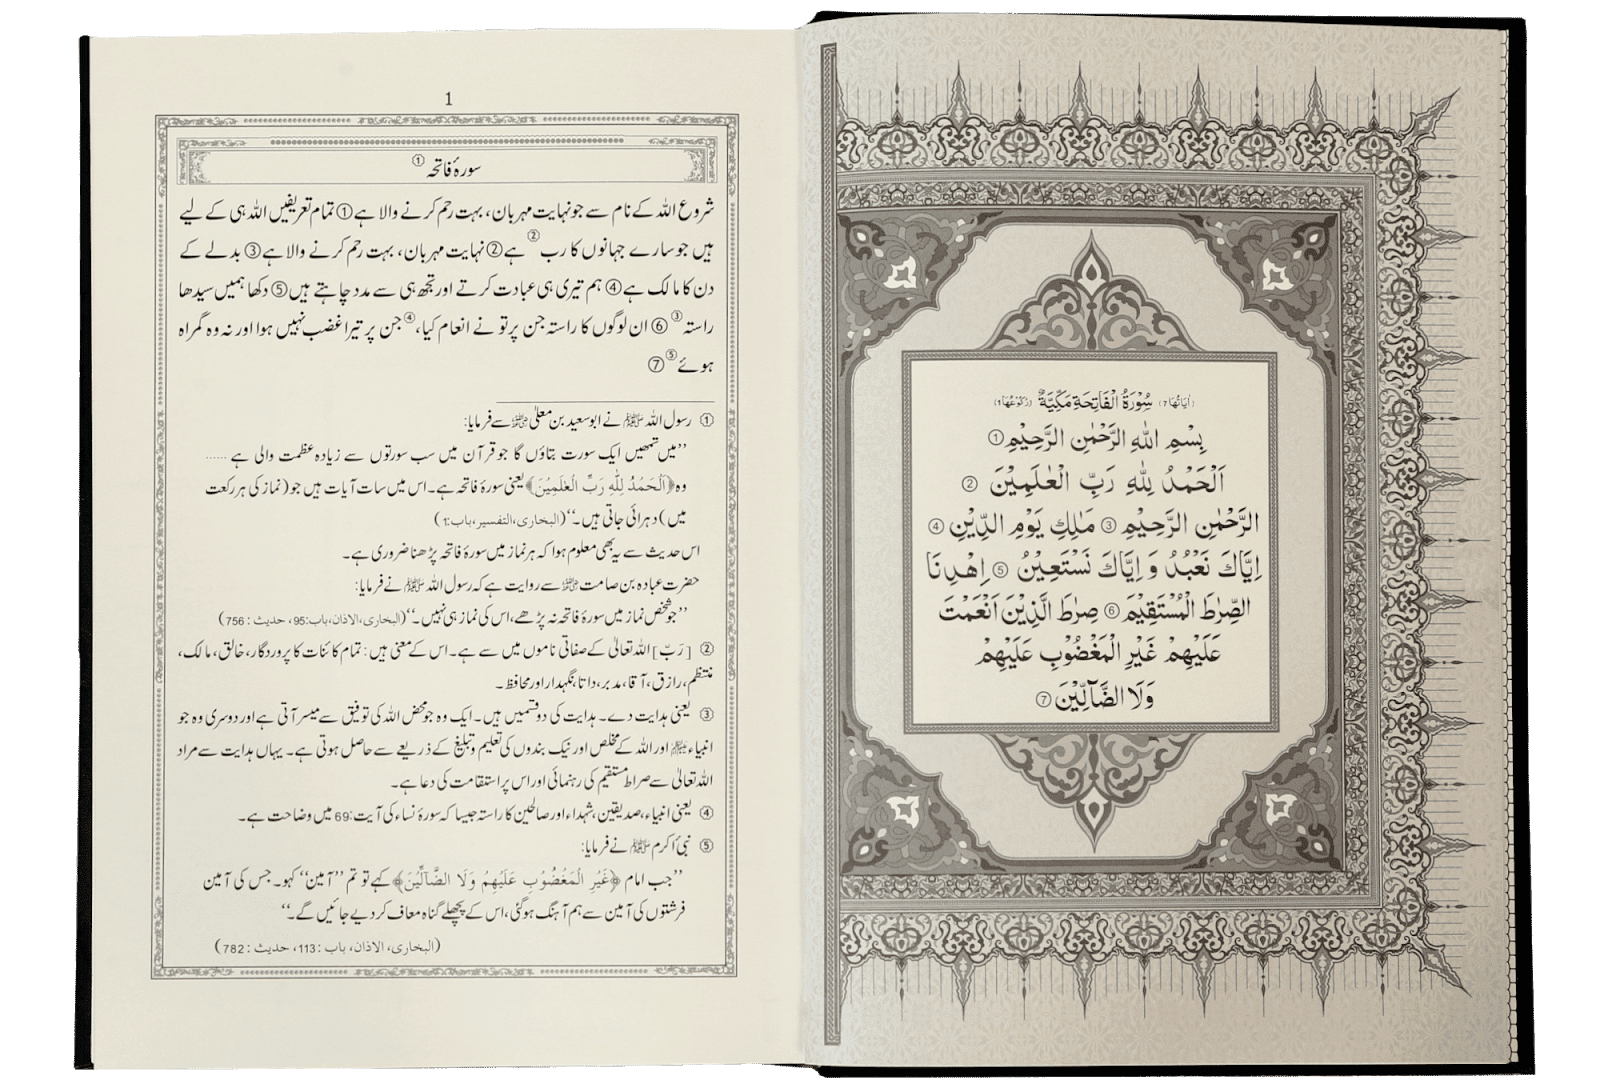 ﴿اٰیَاتُهَا 7﴾ سُوْرَةُ الْفَاتِحَةِ مَكِّيَّةٌ ﴿رُكُوْعُهَا 1﴾
بِسْمِ اللّٰهِ الرَّحْمٰنِ الرَّحِيْمِ ①
اَلْحَمْدُ لِلّٰهِ رَبِّ الْعٰلَمِيْنَ ②
الرَّحْمٰنِ الرَّحِيْمِ ③ مٰلِكِ يَوْمِ الدِّيْنِ ④
اِيَّاكَ نَعْبُدُ وَ اِيَّاكَ نَسْتَعِيْنُ ⑤ اِهْدِنَا
الصِّرَاطَ الْمُسْتَقِيْمَ ⑥ صِرَاطَ الَّذِيْنَ اَنْعَمْتَ
عَلَيْهِمْ غَيْرِ الْمَغْضُوْبِ عَلَيْهِمْ
وَلَا الضَّآلِّيْنَ ⑦
1
سورۂ فاتحہ ①
شروع اللہ کے نام سے جو نہایت مہربان، بہت رحم کرنے والا ہے ① تمام تعریفیں اللہ ہی کے لیے
ہیں جو سارے جہانوں کا رب ② ہے ② نہایت مہربان، بہت رحم کرنے والا ہے ③ بدلے کے
دن کا مالک ہے ④ ہم تیری ہی عبادت کرتے اور تجھ ہی سے مدد چاہتے ہیں ⑤ دکھا ہمیں سیدھا
راستہ ③ ⑥ ان لوگوں کا راستہ جن پر تو نے انعام کیا، ④ جن پر تیرا غضب نہیں ہوا اور نہ وہ گمراہ
ہوئے ⑤ ⑦
① رسول اللہ ﷺ نے ابو سعید بن معلیٰ سے فرمایا:
’’میں تمھیں ایک سورت بتاؤں گا جو قرآن میں سب سورتوں سے زیادہ عظمت والی ہے ......
وہ ﴿اَلْحَمْدُ لِلّٰهِ رَبِّ الْعٰلَمِيْنَ﴾ یعنی سورۂ فاتحہ ہے۔ اس میں سات آیات ہیں جو (نماز کی ہر رکعت
میں) دہرائی جاتی ہیں۔‘‘ (البخاری، التفسیر، باب:1)
اس حدیث سے یہ بھی معلوم ہوا کہ ہر نماز میں سورۂ فاتحہ پڑھنا ضروری ہے۔
حضرت عبادہ بن صامت سے روایت ہے کہ رسول اللہ ﷺ نے فرمایا:
’’جو شخص نماز میں سورۂ فاتحہ نہ پڑھے، اس کی نماز ہی نہیں۔‘‘ (البخاری، الاذان، باب:95، حدیث: 756)
② [رَبّ] اللہ تعالیٰ کے صفاتی ناموں میں سے ہے۔ اس کے معنی ہیں: تمام کائنات کا پروردگار، خالق، مالک،
منتظم، رازق، آقا، مدبر، داتا، نگہدار اور محافظ۔
③ یعنی ہدایت دے۔ ہدایت کی دو قسمیں ہیں۔ ایک وہ جو محض اللہ کی توفیق سے میسر آتی ہے اور دوسری وہ جو
انبیاء اور اللہ کے مخلص اور نیک بندوں کی تعلیم و تبلیغ کے ذریعے سے حاصل ہوتی ہے۔ یہاں ہدایت سے مراد
اللہ تعالیٰ سے صراط مستقیم کی رہنمائی اور اس پر استقامت کی دعا ہے۔
④ یعنی انبیاء، صدیقین، شہداء اور صالحین کا راستہ جیسا کہ سورۂ نساء کی آیت:69 میں وضاحت ہے۔
⑤ نبیٔ اکرم ﷺ نے فرمایا:
’’جب امام ﴿غَيْرِ الْمَغْضُوْبِ عَلَيْهِمْ وَلَا الضَّآلِّيْنَ﴾ کہے تو تم ’’آمین‘‘ کہو۔ جس کی آمین
فرشتوں کی آمین سے ہم آہنگ ہو گئی، اس کے پچھلے گناہ معاف کر دیے جائیں گے۔‘‘
(البخاری، الاذان، باب: 113، حدیث: 782)